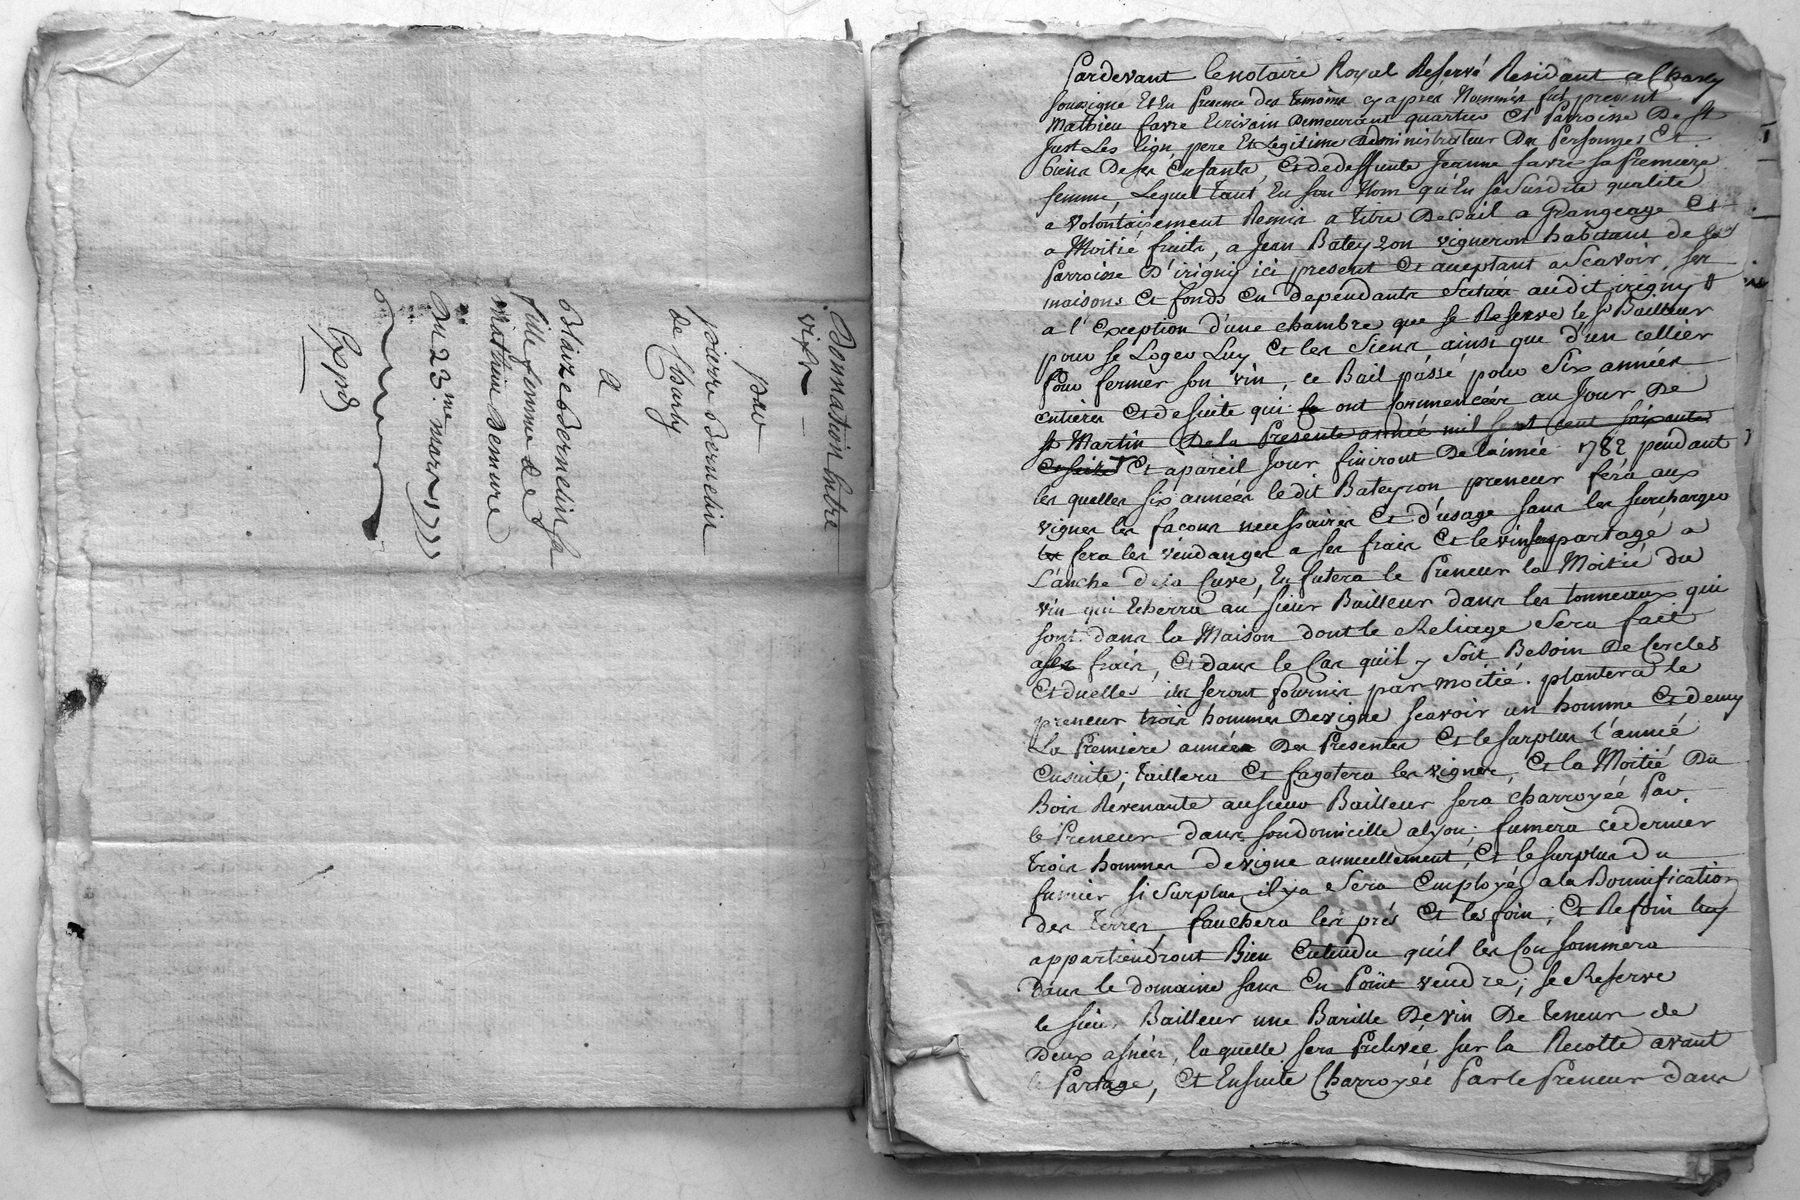 Donnation entre
vifs
par
pierre Bernelin
de Charly
a
Blaize Bernelin sa
fille femme de
mathieu Demure
Du 23me mars 1777
Expé
Pardevant le notaire Royal Reservé Residant a Charly
soussigné Et En Presence des temoins cy apres Nommés fut present
Mathieu favre Ecrivain Demeurant quartier Et Parroisse De St
Just Les Lion pere Et Legitime administrateur Des Personnes Et
biens De ses Enfants, Et de deffunte Jeanne favre sa Premiere
femme, Lequel tant En son Nom qu'En sa Susdite qualité
a volontairement Remis a titre De Bail a Grangeage Et
a Moitié fruits, a Jean Bateyron vigneron habitant de la
Parroisse D'irigny ici present Et aceptant a Scavoir, ses
maisons Et fonds En dependants Situés audit irigny
a l'Exception d'une chambre que se Reserve le Sr Bailleur
pour se Loger Luy Et les Siens, ainsi que d'un cellier
pour fermer son vin, ce Bail passé pour Six années
entieres Et de suite qui ont commencées au Jour De
St Martin De la Presente année mil sept cent soixante
Et seize Et a pareil Jour finiront De l'année 1782 pendant
les quelles six années le dit Bateyron preneur fera aux
vignes les facons necessaires Et d'usage sans les surcharger
fera les vendanges a ses frais Et le vin sera partagé a
L'anche de la Cuve, En futera le Preneur la Moitié du
vin qui Echerra au sieur Bailleur dans les tonneaux qui
sont dans la Maison dont le Reliage Sera fait
a ses frais, Et dans le Cas qu'il y Soit Besoin De Cercles
Et duelles ils seront fournis par moitié. plantera le
preneur trois hommes De vigne scavoir un homme Et demy
La Premiere année Des Presentes Et le surplus l'année
Ensuite; taillera Et fagotera les vignes, Et la Moitié Du
Bois Revenante au sieur Bailleur sera charroyée Par
le Preneur dans son domicille a Lyon; fumera ce dernier
trois hommes de vigne annuellement, Et le surplus du
fumier si Surplus il y a Sera Employé a la Bonnification
des terres, fauchera les prés Et les foin, Et Refoin luy
appartiendront Bien Entendu qu'il les Consommera
Dans le domaine sans En Point vendre, se Reserve
le sieur Bailleur une Barille De vin De teneur de
Deux asnées, laquelle sera Prelevée sur la Recolte avant
le Partage, Et Ensuite Charroyée Par le Preneur dans